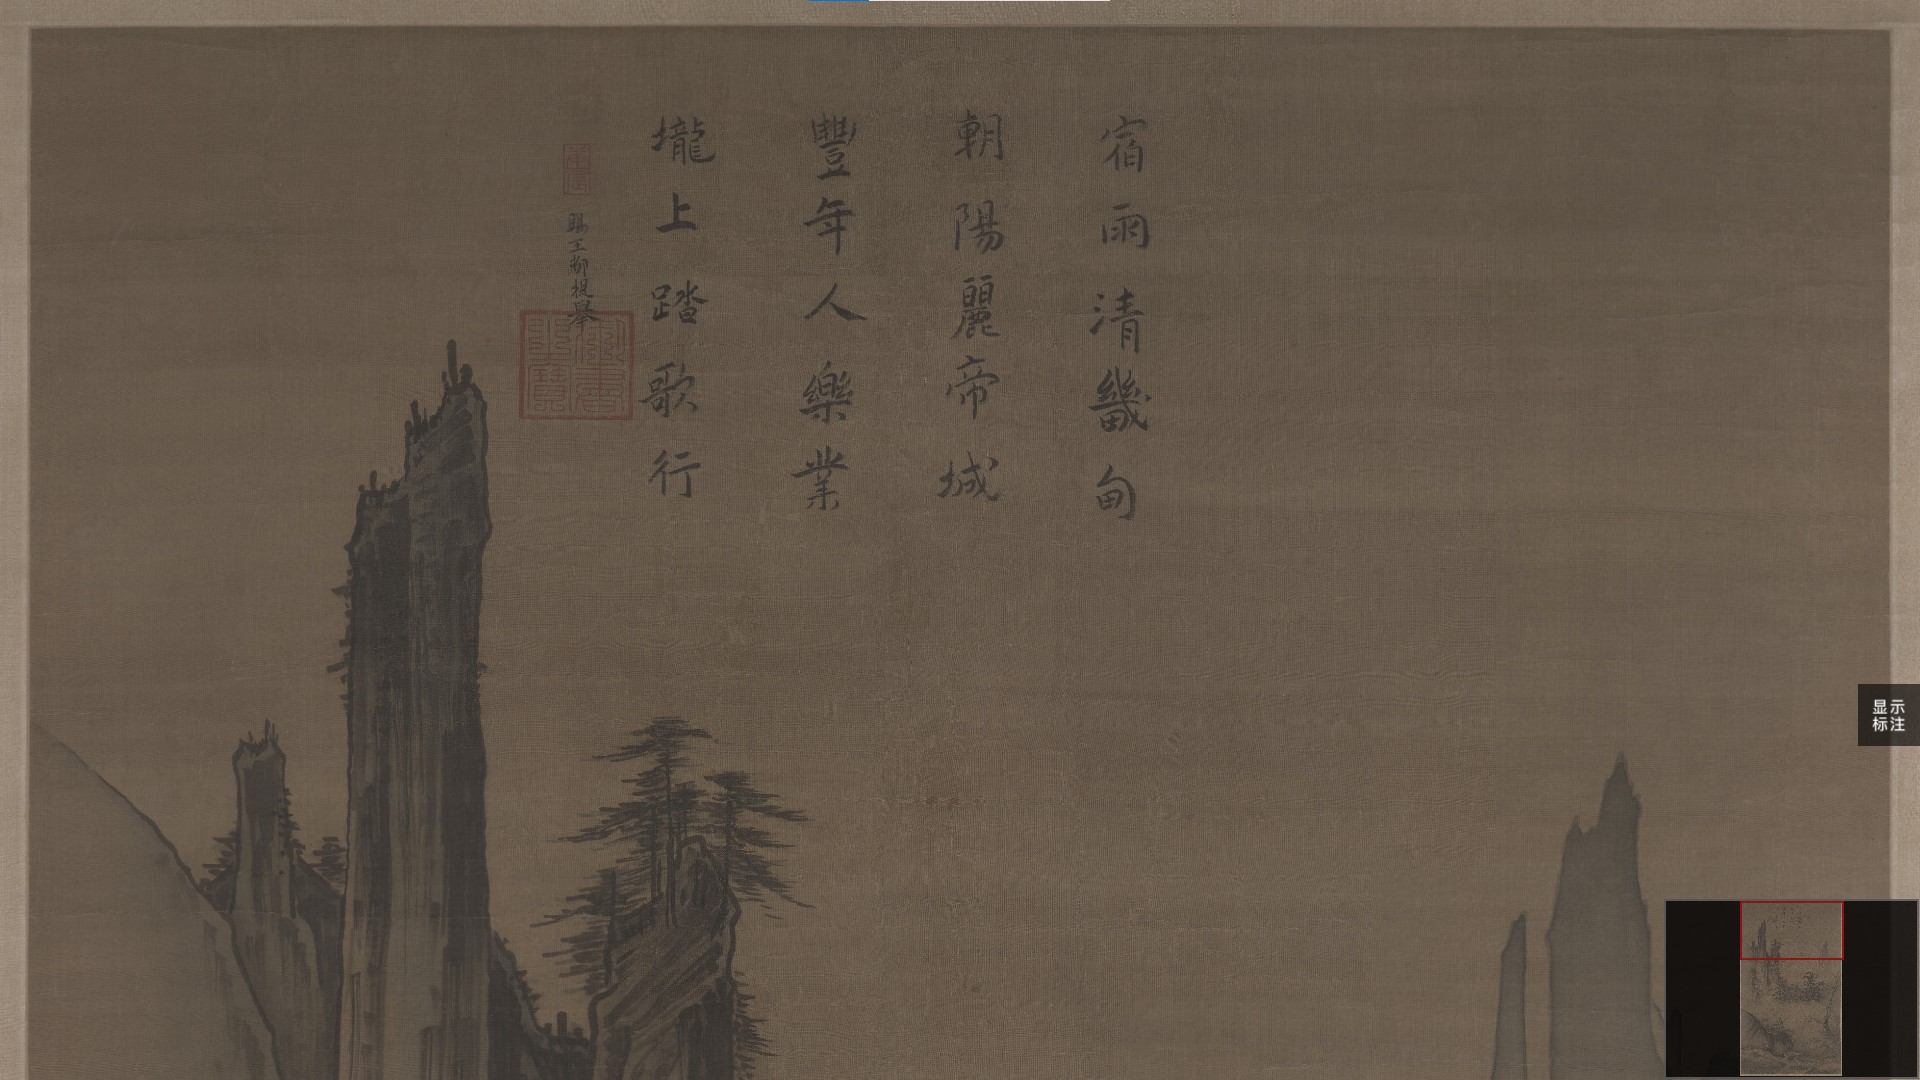 宿雨清畿甸
朝陽麗帝城
豐年人樂業
壠上踏歌行
賜王都提舉
显示
标注